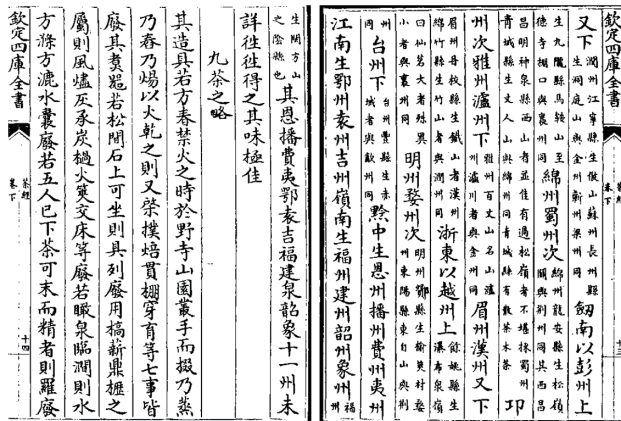 欽定四庫全書
卷下
十三
又下潤州江寧縣生傲山蘇州長州縣生洞庭山與金州蘄州梁州同劒南以彭州上
生九隴縣馬鞍山至德寺棚口與襄州同綿州蜀州次綿州龍安縣生松嶺關與荆州同其西昌
昌明神泉縣西山者並佳有過松嶺者不堪採蜀州青城縣生丈人山與綿州同青城縣有散茶木茶卭
州次雅州瀘州下雅州百丈山名山瀘州瀘川者與金州同眉州漢州又下
眉州丹校縣生鐵山者漢州綿竹縣生竹山者與潤州同浙東以越州上餘姚縣生瀑布泉嶺
曰仙茗大者殊異小者與襄州同明州婺州次明州鄮縣生榆筴村婺州東陽縣東白山與荆
州同台州下台州豐縣生赤城者與歙州同黔中生恩州播州費州夷州
江南生鄂州袁州吉州嶺南生福州建州韶州象州福州
生閩方山之陰縣也其恩播費夷鄂袁吉福建泉韶象十一州未
詳往往得之其味極佳
九茶之略
其造具若方春禁火之時於野寺山園叢手而掇乃蒸
乃舂乃煬以火乾之則又棨撲焙貫棚穿育等七事皆
廢其煑器若松間石上可坐則具列廢用槁薪鼎櫪之
屬則風爐灰承炭檛火筴交床等廢若瞰泉臨澗則水
方滌方漉水囊廢若五人已下茶可末而精者則羅廢
欽定四庫全書
茶經
卷下
十四